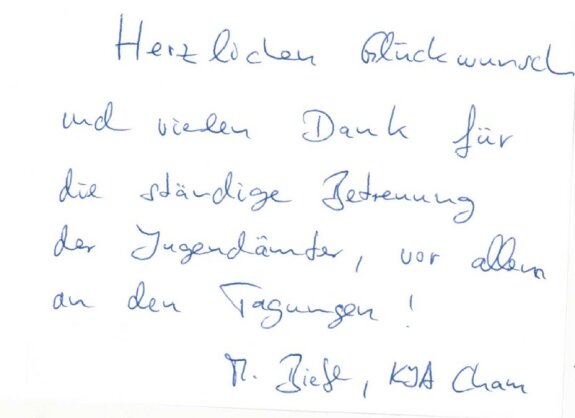 Herzlichen Glückwunsch
und vielen Dank für
die ständige Betreuung
der Jugendämter, vor allem
an den Tagungen!
M. , KJA Cham